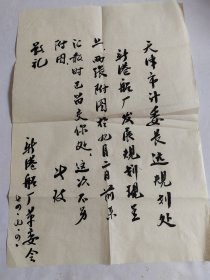 天津市计委长远规划处
新港船厂发展规划现呈
上，两张附图于九月二日前来
记取时已留交你处，这次不另
附图。
此致
敬礼
新港船厂革委会